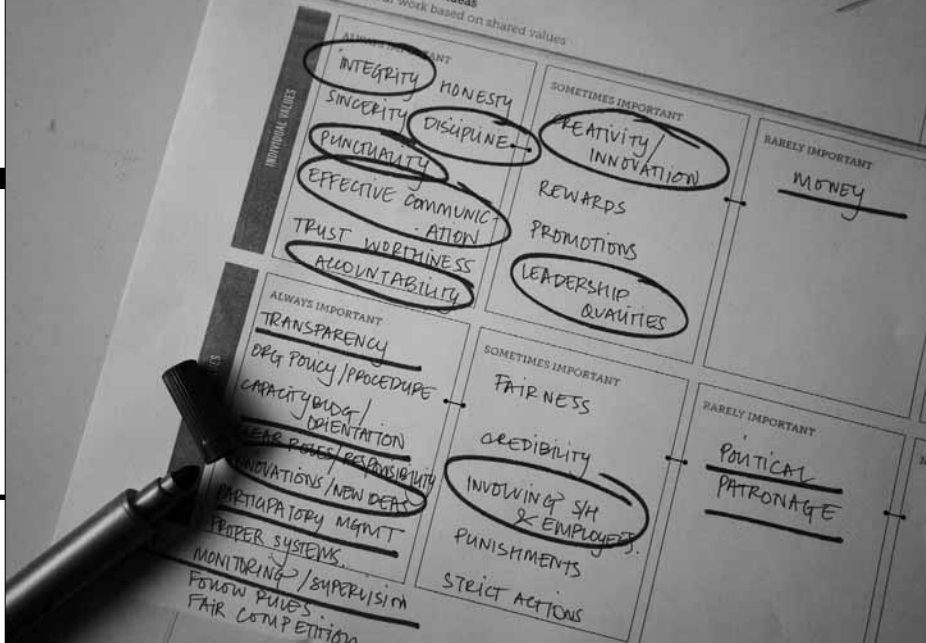 work based on shared values
INDIVIDUAL VALUES
ALWAYS IMPORTANT
INTEGRITY
HONESTY
SINCERITY
DISCIPLINE
PUNCTUALITY
EFFECTIVE COMMUNIC-
ATION
TRUST WORTHINESS
ACCOUNTABILITY
SOMETIMES IMPORTANT
CREATIVITY/
INNOVATION
REWARDS
PROMOTIONS
LEADERSHIP
QUALITIES
RARELY IMPORTANT
MONEY
ALWAYS IMPORTANT
TRANSPARENCY
ORG POLICY/PROCEDURE
CAPACITY BLDG/
ORIENTATION
CLEAR ROLES/RESPONSIBILITY
INNOVATIONS/NEW IDEAS
PARTICIPATORY MGMT
PROPER SYSTEMS.
MONITORING/SUPERVISION
FOLLOW RULES.
FAIR COMPETITION
SOMETIMES IMPORTANT
FAIRNESS
CREDIBILITY
INVOLVING S/H
& EMPLOYEES.
PUNISHMENTS
STRICT ACTIONS
RARELY IMPORTANT
POLITICAL
PATRONAGE